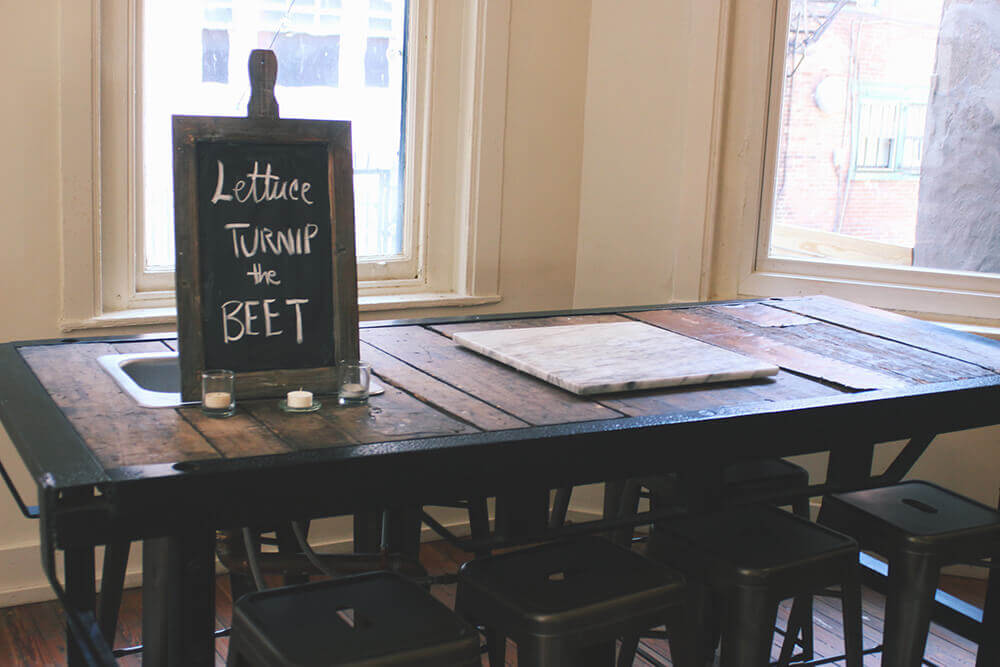 Lettuce
TURNIP
the
BEET